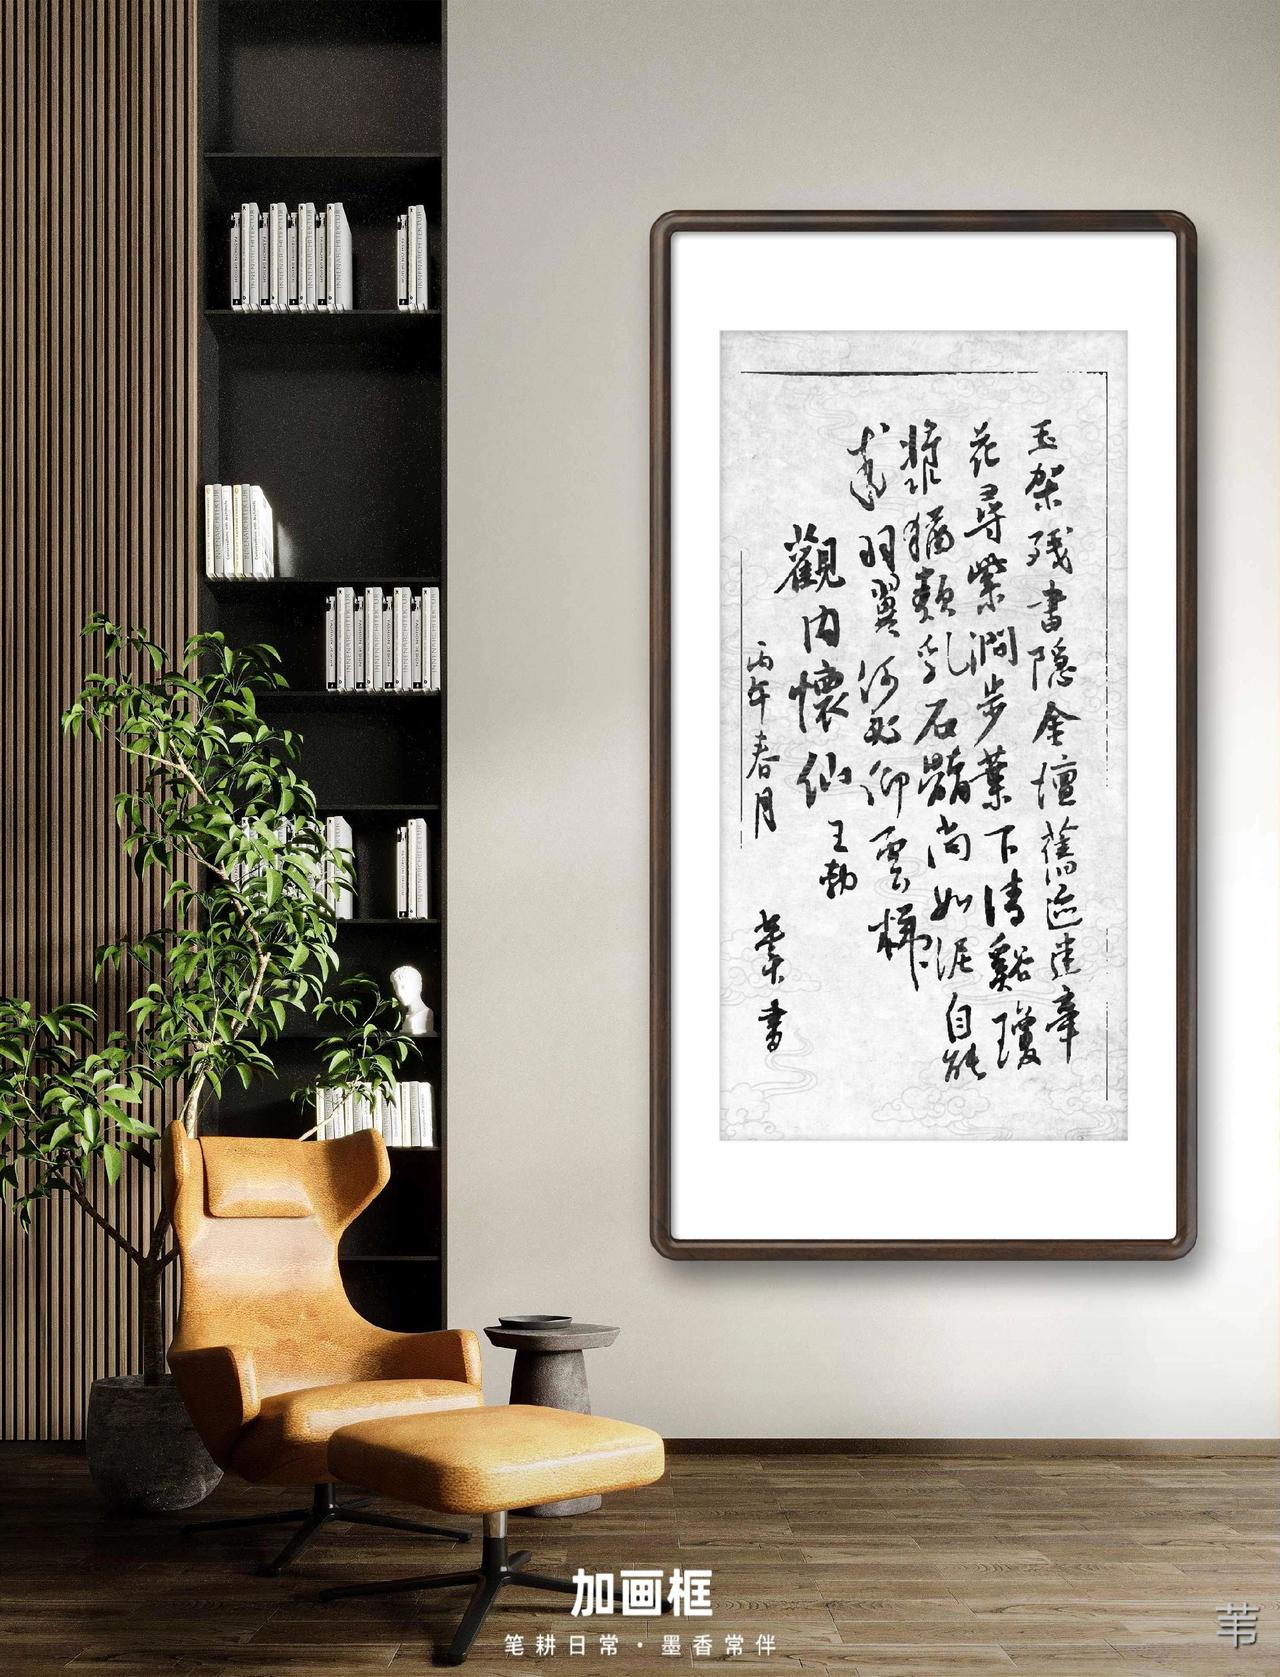 玉架残書隐金壇舊迹迷牽
花尋紫澗步葉下清谿瓊
漿猶類乳石髓尚如泥自能
羽翼何必仰雲梯
觀内懷仙 王勃
丙午春月 書
加画框
笔耕日常·墨香常伴
苇